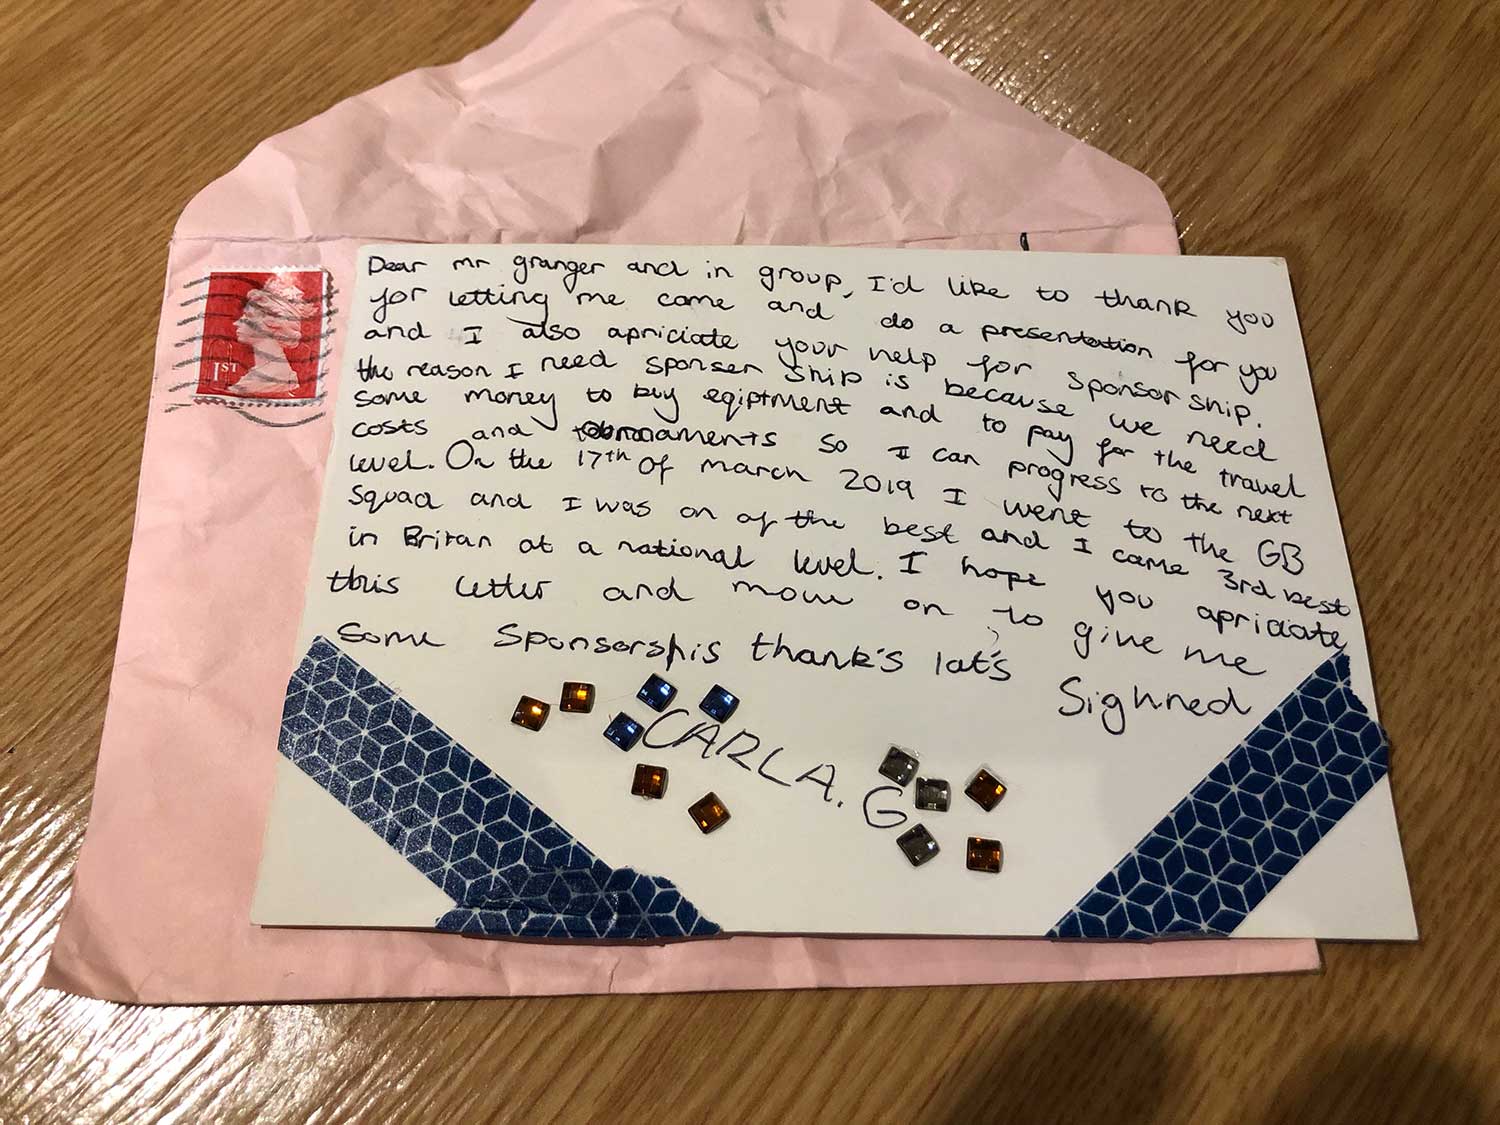 Dear mr granger and in group, I'd like to thank you
for letting me come and do a presentation for you
and I also apriciate your help for sponsor ship.
the reason I need sponser ship is because we need
some money to buy eqiptment and to pay for the travel
costs and tournaments so I can progress to the next
level. On the 17th of march 2019 I went to the GB
squad and I was on of the best and I came 3rd best
in Britan at a national level. I hope you apriciate
this letter and move on to give me
some sponsorshis thank's lat's
Sighned
CARLA. G
1ST